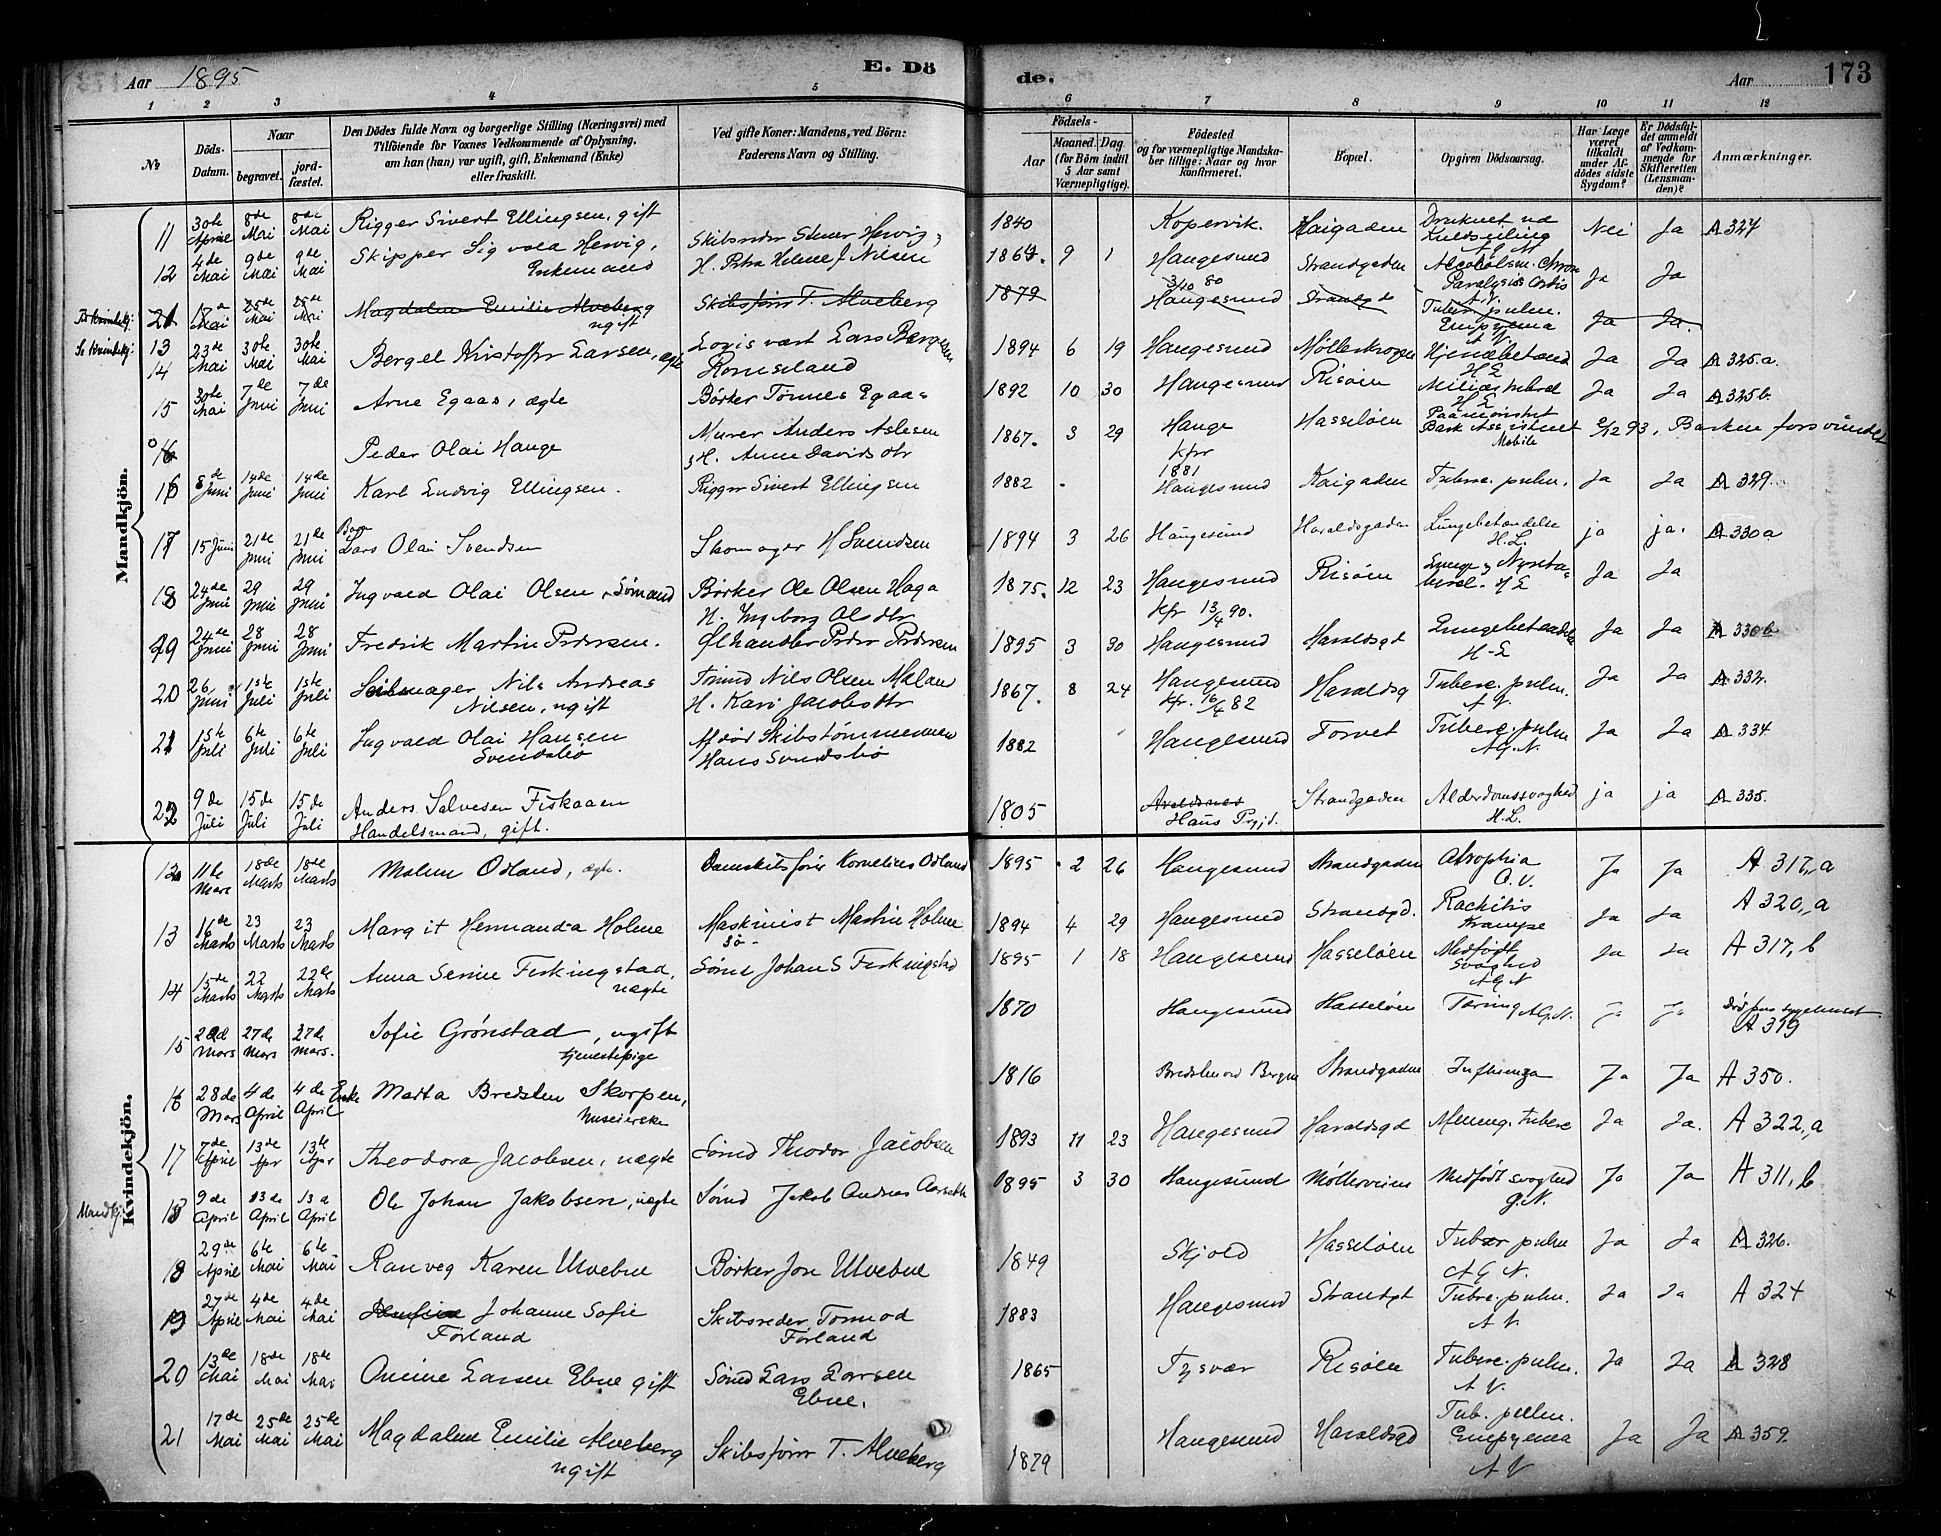 Aar 1895 E. Dö
de. Aar 173
1 2 3 4 5 6 7 8 9 10 11 12
№
Döds-Datum.
Naar
begravet.
jord-fæstet.
Den Dödes fulde Navn og borgerlige Stilling (Næringsvei) med
Tilföiende for Voxnes Vedkommende af Oplysning,
om han (hun) var ugift, gift, Enkemand (Enke)
eller fraskilt.
Ved gifte Koner: Mandens, ved Börn:
Faderens Navn og Stilling.
Födsels-
Aar
Maaned. Dag
(for Börn indtil
5 Aar samt
Værnepligtige).
Födested
og for værnepligtige Mandska-
ber tillige: Naar og hvor
konfirmeret.
Bopæl.
Opgiven Dödsaarsag.
Har Læge
været
tilkaldt
under Af-
dödes sidste
Sygdom?
Er Dödsfal-
det anmeldt
af Vedkom-
mende for
Skifteretten
(Lensman-
den)?
Anmærkninger.
Mandkjön.
11 30te April 8de Mai 8de Mai Rigger Sivert Ellingsen, gift 1840 Kopervik. Kaigaden Druknet ved Kuldseiling Nei Ja A 327
12 4de Mai 9de Mai 9de Mai Skipper Sigvald Hervig, Enkemand H. Petra Helene J Nilsen 1864. 9 1 Haugesund Strandgaden Ja Ja
21 18de Mai 25de Mai 25de Mai Magdalene Emilie Alveberg ugift Skibsförer T. Alveberg 1879 Haugesund Tuber. pulm. Empyema Ja Ja.
13 23de Mai 30te Mai 30te Mai
14 Bergel Kristoffer Larsen, ægte 1894 6 19 Haugesund Ja Ja A 325.a.
15 30te Mai 7de Juni 7de Juni Arne Egaas, ægte Børker Tønnes Egaas 1892 10 30 Haugesund Risøen H E Ja Ja A 325b.
Peder Olai Hauge Murer Anders Aslesen H. Anne Davidsdtr 1867. 3 29 Hauge kfr 1881 Hasseløen Bark Assistent Mobile 2/12 93, Barken forsvundet
16 8de Juni 14de Juni 14de Juni Karl Ludvig Ellingsen. Rigger Sivert Ellingsen 1882 Haugesund Kaigaden Tuberc. pulm. Ja Ja A 329.
17 15 Juni 21de Juni 21de Juni Barn Lars Olai Svendsen Skomager H Svendsen 1894 3 26 Haugesund Haraldsgaden Lungebetændelse H.L. ja ja. A 330a
18 24de Juni 29 Juni 29 Juni Ingvald Olai Olsen, Sømand Børker Ole Olsen Haga H. Ingeborg Olsdtr 1875. 12 23 Haugesund kfr 13/4 90. Risøen H E Ja Ja
19 24de Juni 28 Juni 28 Juni Fredrik Martin Pedersen. Ølhandler Peder Pedersen 1895 3 30 Haugesund Haraldsgd Lungebetændelse H-E Ja Ja A 330b
20 26 Juni 1ste Juli 1ste Juli Nils Andreas Nilsen, ugift Nils Olsen H. Kari Jacobsdtr 1867. 8 24 Haugesund kfr. 16/4 82 Haraldsg Tuberc. pulm. A V. Ja Ja A 332.
21 1ste Juli 6te Juli 6te Juli Ingvald Olai Hansen Svendsbø Afdød Skibstømmermand Hans Svendsbø 1882 Haugesund Torvet Tuberc. pulm A.G.N. Ja Ja A 334
22 9de Juli 15de Juli 15de Juli Anders Salvesen Fiskaaen Handelsmand, gift. 1805 Avaldsnes Haus Prgjd. Strandgaden Alderdomssvaghed H.L. ja ja A 335.
Kvindekjön.
12 11te Mars 18de Marts 18de Marts Malene Odland, ægte. Damskibsfører Kornelius Odland 1895 2 26 Haugesund Strandgaden Atrophia O.V. Ja Ja A 317,a
13 16de Marts 23 Marts 23 Marts Margit Hermanda Holme Maskinist Martin Holme 1894 4 29 Haugesund Strandgd. Rachitis Krampe Ja Ja A 320,a
14 15de Marts 22 Marts 22de Marts Anna Serine Fiskingstad, uægte Sømd Johan S Fiskingstad 1895 1 18 Haugesund Hasseløen Medfødt svaghed A G N Ja Ja A 317,b
15 22d Mars 27de Mars 27de Mars. Sofie Grønstad, ugift tjenestepige 1870 Haugesund Hasseløen Tæring A.G.N. Ja Ja A 319
16 28de Mars 4de April 4de April Enke Marta Bredsten Skorpen, 1816 Strandgaden Influenza Ja Ja A 350.
17 7de April 13de Apr 13de Apr Theodora Jacobsen, uægte Sømd Theodor Jacobsen 1893 11 23 Haugesund Haraldsgd Mening. tuberc Ja Ja. A 322,a
Mandkj. 18 9de April 13de April 13d April Ole Johan Jakobsen, uægte Sømd Jakob Andreas 1895 3 30 Haugesund Medfødt svaghed G.N. Ja Ja A 311,b
18 29de April 6te Mai 6te Mai Ranveg Karen Ulvebne Børker Jon Ulvebne 1849 Skjold Hasseløen Tuber pulm A G N. Ja Ja A 326.
19 27de April 4de Mai 4de Mai Johanne Sofie Førland Skibsreder Tormod Førland 1883 Haugesund Strandgt Tuberc. pulm. A V. Ja Ja A 324
20 13de Mai 18de Mai 18de Mai Larsen Ebne gift Sømd Lars Larsen Ebne. 1865 Tysvær Risøen Tuberc. pulm. A V. Ja Ja A 328
21 17de Mai 25de Mai 25de Mai Magdalene Emilie Alveberg ugift Skibsfører T. Alveberg 1879 Haugesund Haraldsgd Tub. pulm. Empyema A V Ja Ja A 359.